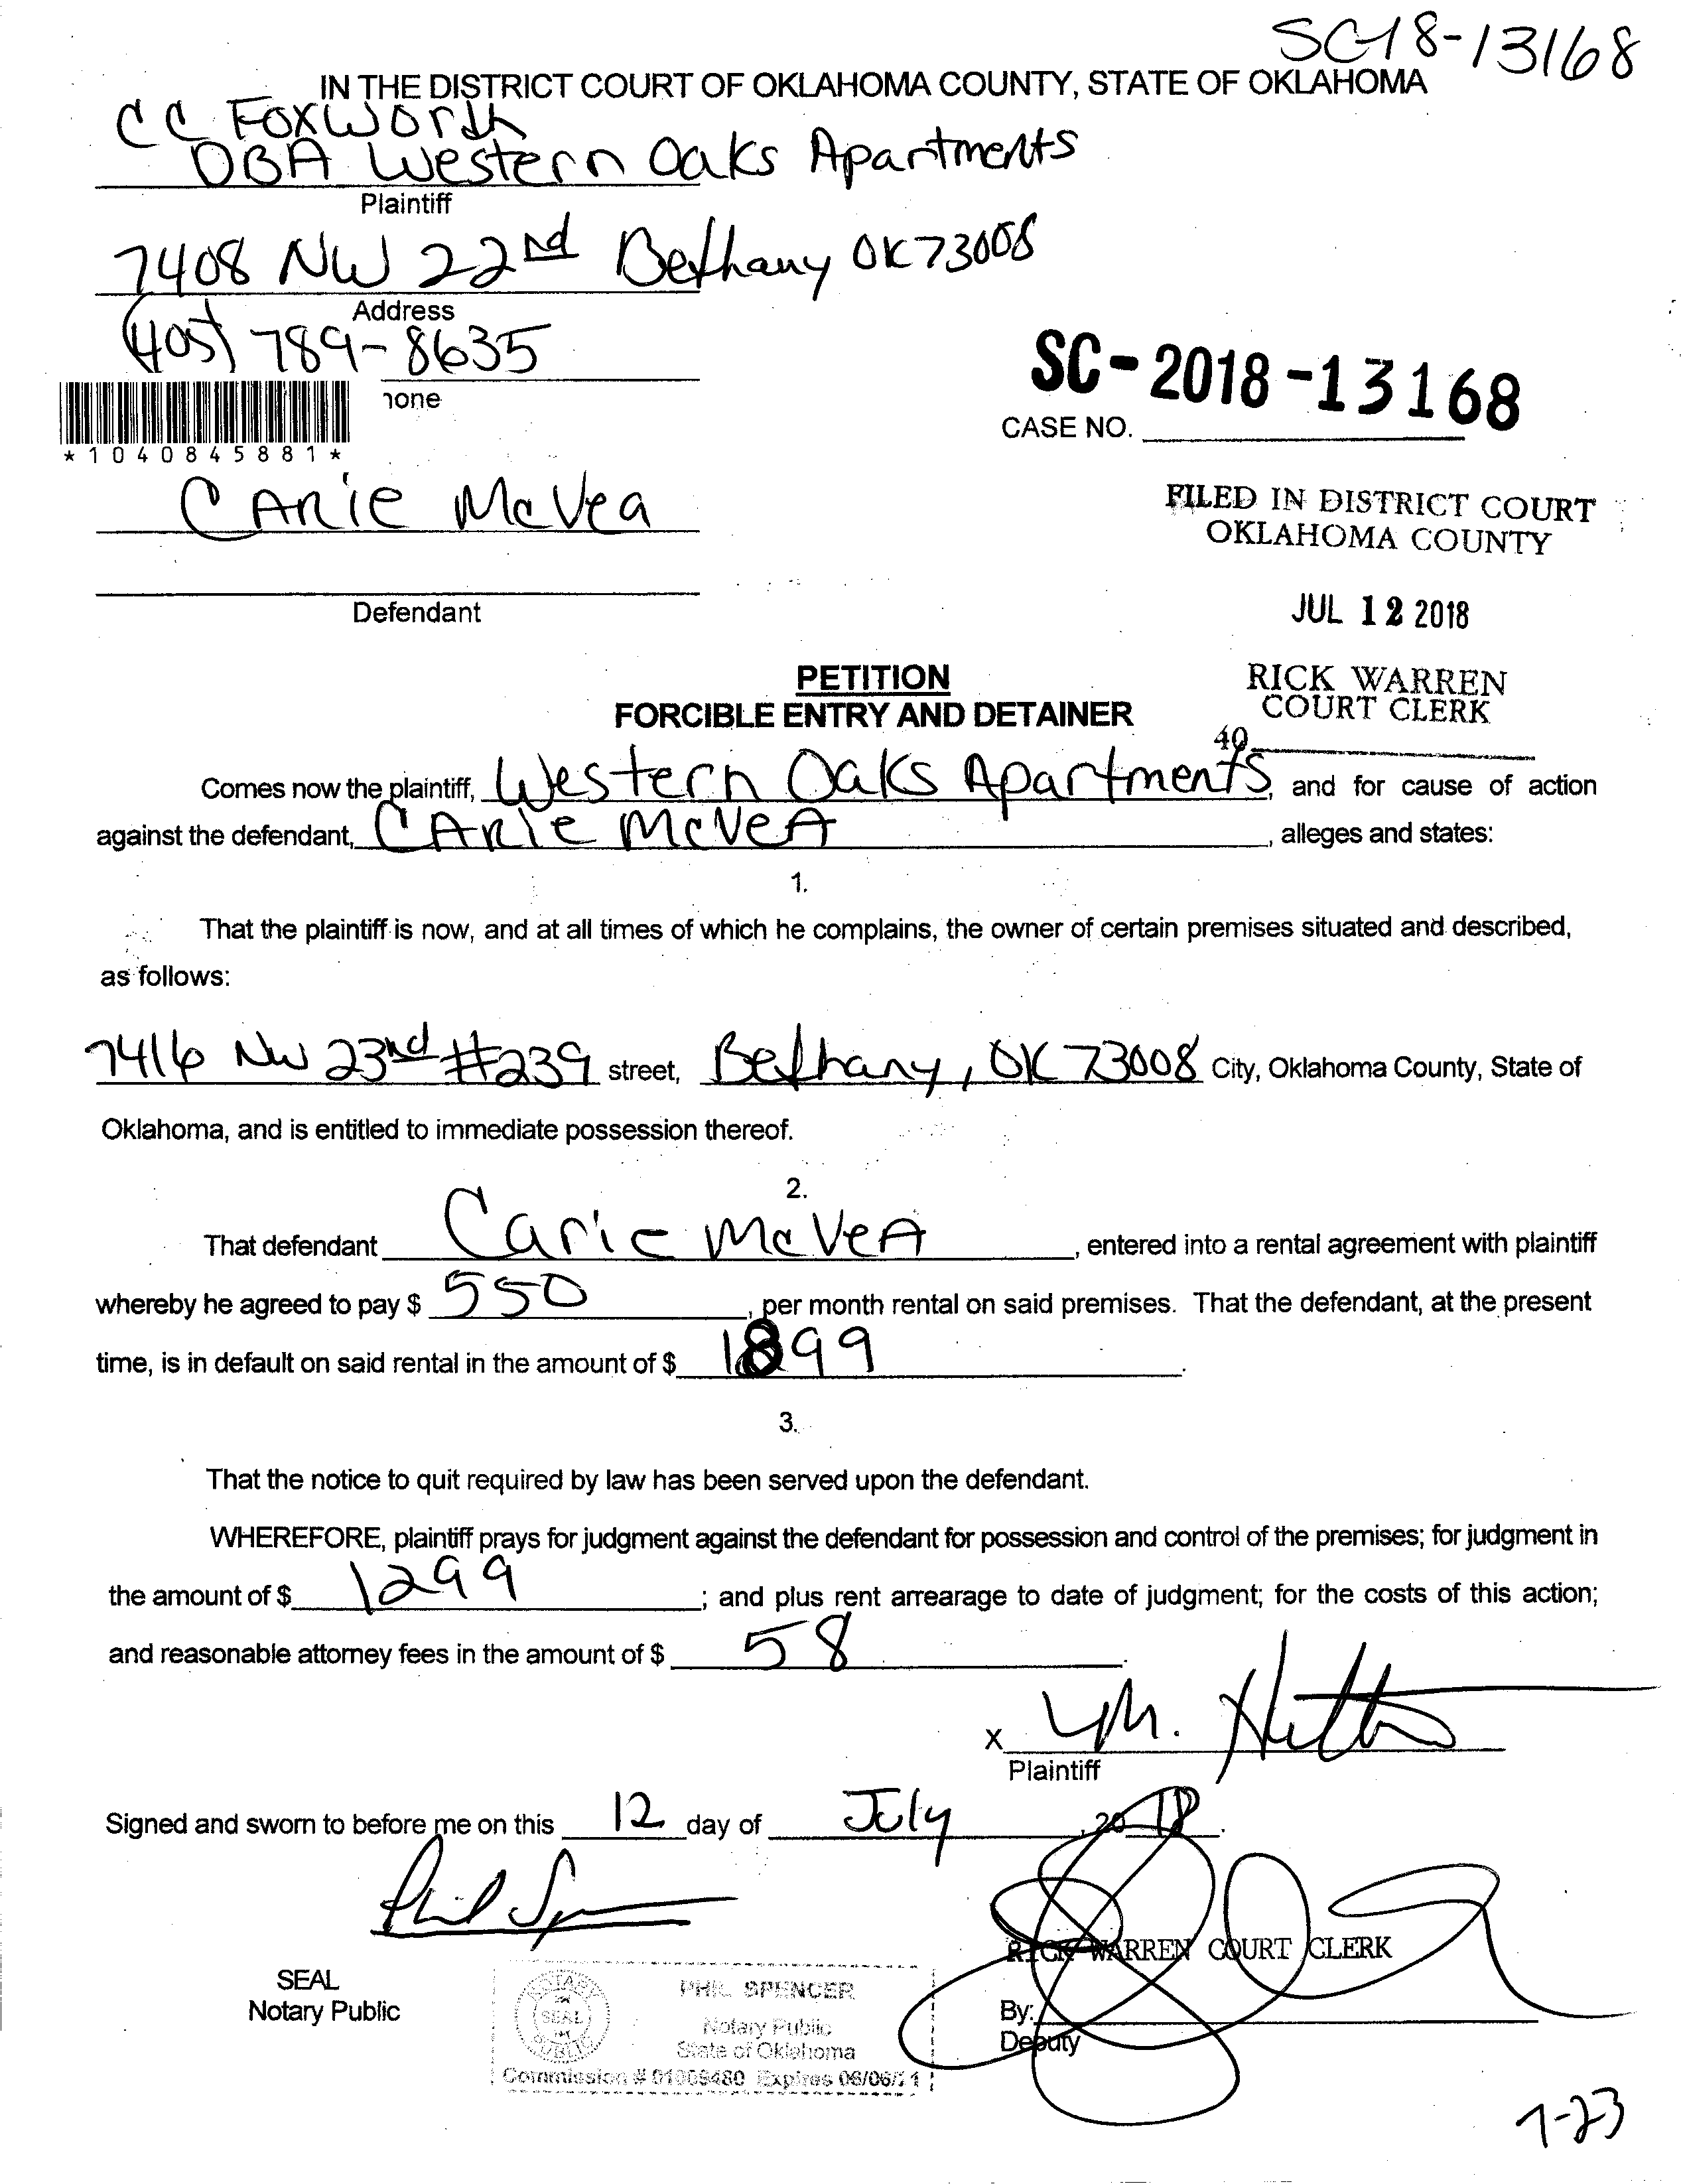 SC-18-13168
IN THE DISTRICT COURT OF OKLAHOMA COUNTY, STATE OF OKLAHOMA
CC Foxworth
DBA Western Oaks Apartments
Plaintiff
7408 NW 22nd Bethany OK 73008
Address
(405) 789-8635
hone
*1040845881*
SC-2018-13168
CASE NO.
CARIE McVea
Defendant
FILED IN DISTRICT COURT
OKLAHOMA COUNTY
JUL 12 2018
RICK WARREN
COURT CLERK
40
PETITION
FORCIBLE ENTRY AND DETAINER
Comes now the plaintiff, Western Oaks Apartments, and for cause of action
against the defendant, CARIE McVeA, alleges and states:
1.
That the plaintiff is now, and at all times of which he complains, the owner of certain premises situated and described,
as follows:
7416 NW 23rd #239 street, Bethany, OK 73008 City, Oklahoma County, State of
Oklahoma, and is entitled to immediate possession thereof.
2.
That defendant Carie McVeA, entered into a rental agreement with plaintiff
whereby he agreed to pay $ 550, per month rental on said premises. That the defendant, at the present
time, is in default on said rental in the amount of $ 1899.
3.
That the notice to quit required by law has been served upon the defendant.
WHEREFORE, plaintiff prays for judgment against the defendant for possession and control of the premises; for judgment in
the amount of $ 1299; and plus rent arrearage to date of judgment; for the costs of this action;
and reasonable attorney fees in the amount of $ 58.
X
Plaintiff
Signed and sworn to before me on this 12 day of July, 2018.
Phil Spencer
RICK WARREN COURT CLERK
SEAL
Notary Public
NOTARY PUBLIC
SEAL
PHIL SPENCER
Notary Public
State of Oklahoma
Commission # 01009480 Expires 06/06/21
By:
Deputy
7-23